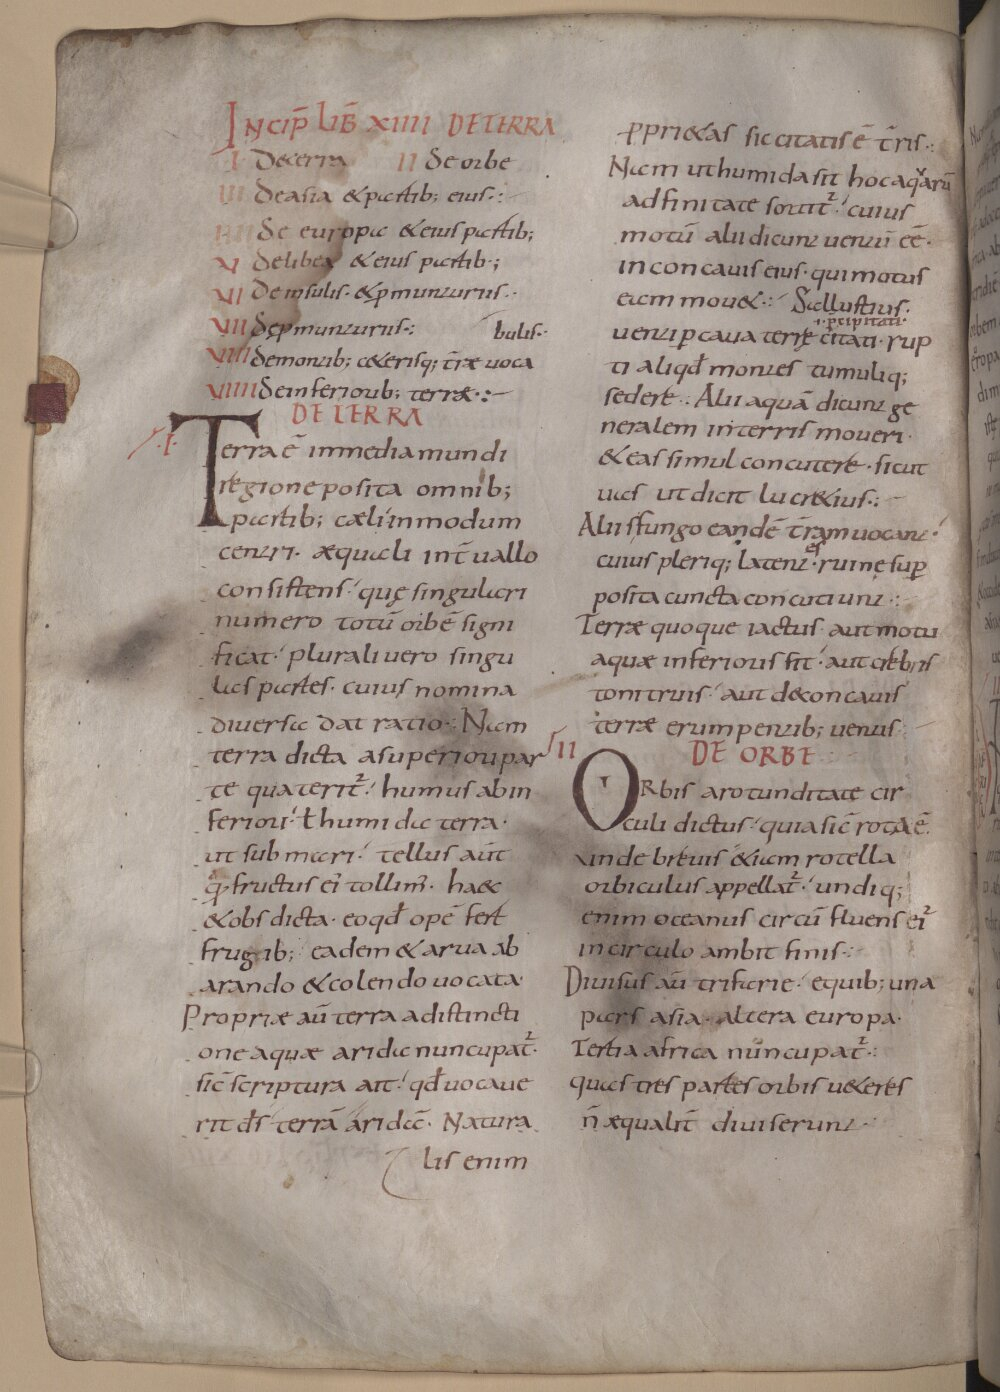 Incip̄ lib̄ xiiii de terra
I De terra II De orbe
III De asia & partib; eius·:
IIII De europa & eius partib;
V De libea & eius partib;
VI De insulis· & pmunturiis·
VII De pmunturiis·:
bulis·
VIII De montib; ceterisq; t̄ræ voca
VIIII De inferiorib; terrae·:
DE TERRA
·I· Terra ē in media mundi
regione posita omnib;
partib; cæli in modum
centri· æquali int̄uallo
consistens· quę singulari
numero totū orbē signi
ficat· plurali uero singu
las partes· cuius nomina
diuersa dat ratio·: Nam
terra dicta a superiori par
te qua terit᷑· humus ab in
feriori· t humida terra·
ut sub mari· tellus aūt
q̄ fructus ei᷑ tollim᷑· haec
& obs dicta· eo qđ opē fert
frugib; eadem & arua ab
arando & colendo uocata·
Propriæ aū terra a distincti
one aquæ arida nuncupat᷑·
sic̄ scriptura ait· qđ uocaue
rit d̄s terrā aridā· Natura
lis enim
pprietas siccitatis ē t̄ris·:
Nam ut humida sit hoc aquarū
adfinitate sortit᷑· cuius
motū alii dicunt uentū eē·
in concauis eius· qui motus
eam mouet·: Sallustius·
·i· p̄cipitati·
uenti p caua terre citati· rup
ti aliqđ montes tumuliq;
sedere·: Alii aquā dicunt ge
neralem in terris moueri·
& eas simul concutere· sicut
uas ut dicit lucretius·:
Alii sfungo eandē t̄ram uocant·
es
cuius pleriq; latent· ruinę sup
posita cuncta concutiunt·:
Terræ quoque iactus· aut motu
aquæ inferioris fit· aut crebris
tonitruis· aut de concauis
terræ erumpentib; uentis·
II DE ORBE
Orbis a rotunditate cir
culi dictus· quia sic̄ rota ē·
unde breuis &iam rotella
orbiculus appellat᷑· undiq;
enim oceanus circū fluens ei᷑
in circulo ambit finis·:
Diuisus aū trifarie· e quib; una
pars asia· altera europa·
Tertia africa nuncupat᷑·:
quas tres partes orbis ueteres
n̄ æqualit̄ diuiserunt·